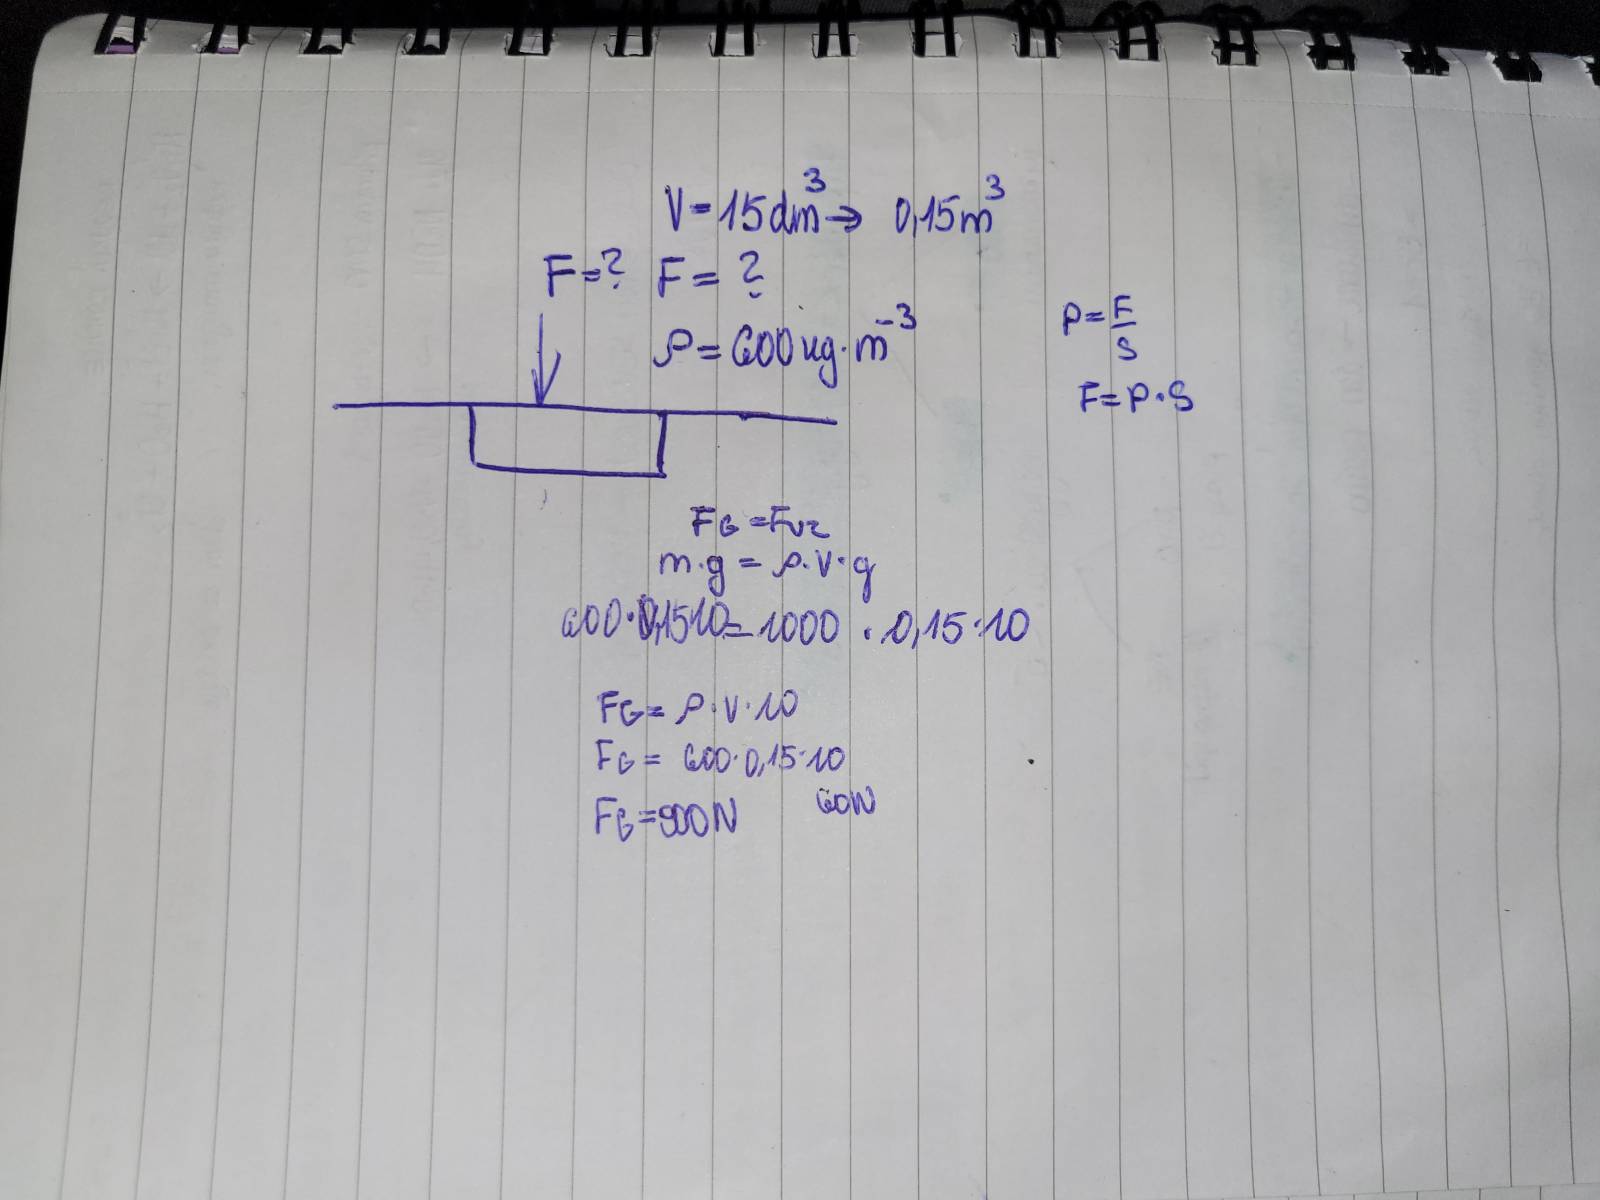 V=15dm³→ 0,15m³
F=? F=?
ρ=600kg·m⁻³
P=F/S
F=P·S
FG=Fvz
m·g=ρ·V·g
600·0,15·10=1000·0,15·10
FG=ρ·V·10
FG=600·0,15·10
FG=900N 60N